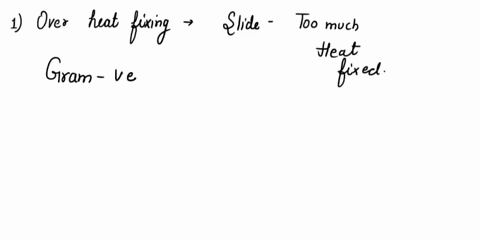 1) Over heat fixing → Slide - Too much
Heat
fixed.
Gram - ve